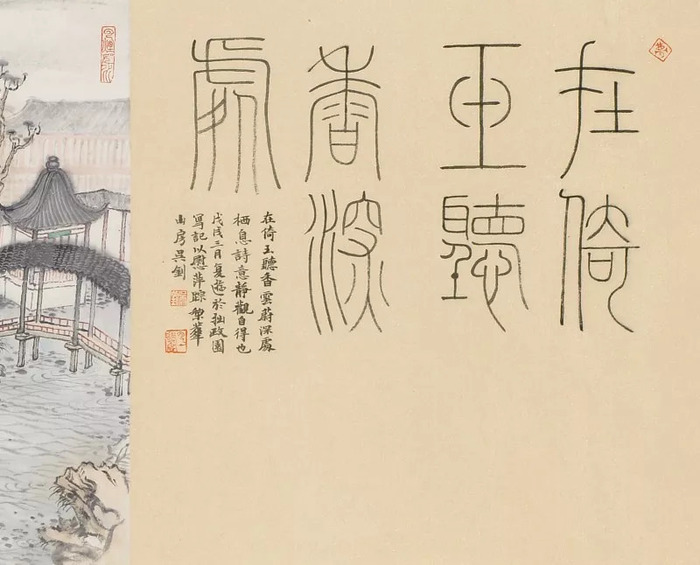 在倚
玉聽
香深
處
在倚玉聽香雲蔚深處
栖息詩意靜觀自得也
戊戌三月复遊於拙政園
寫記以慰萍踪 犂葊
由房吳劍